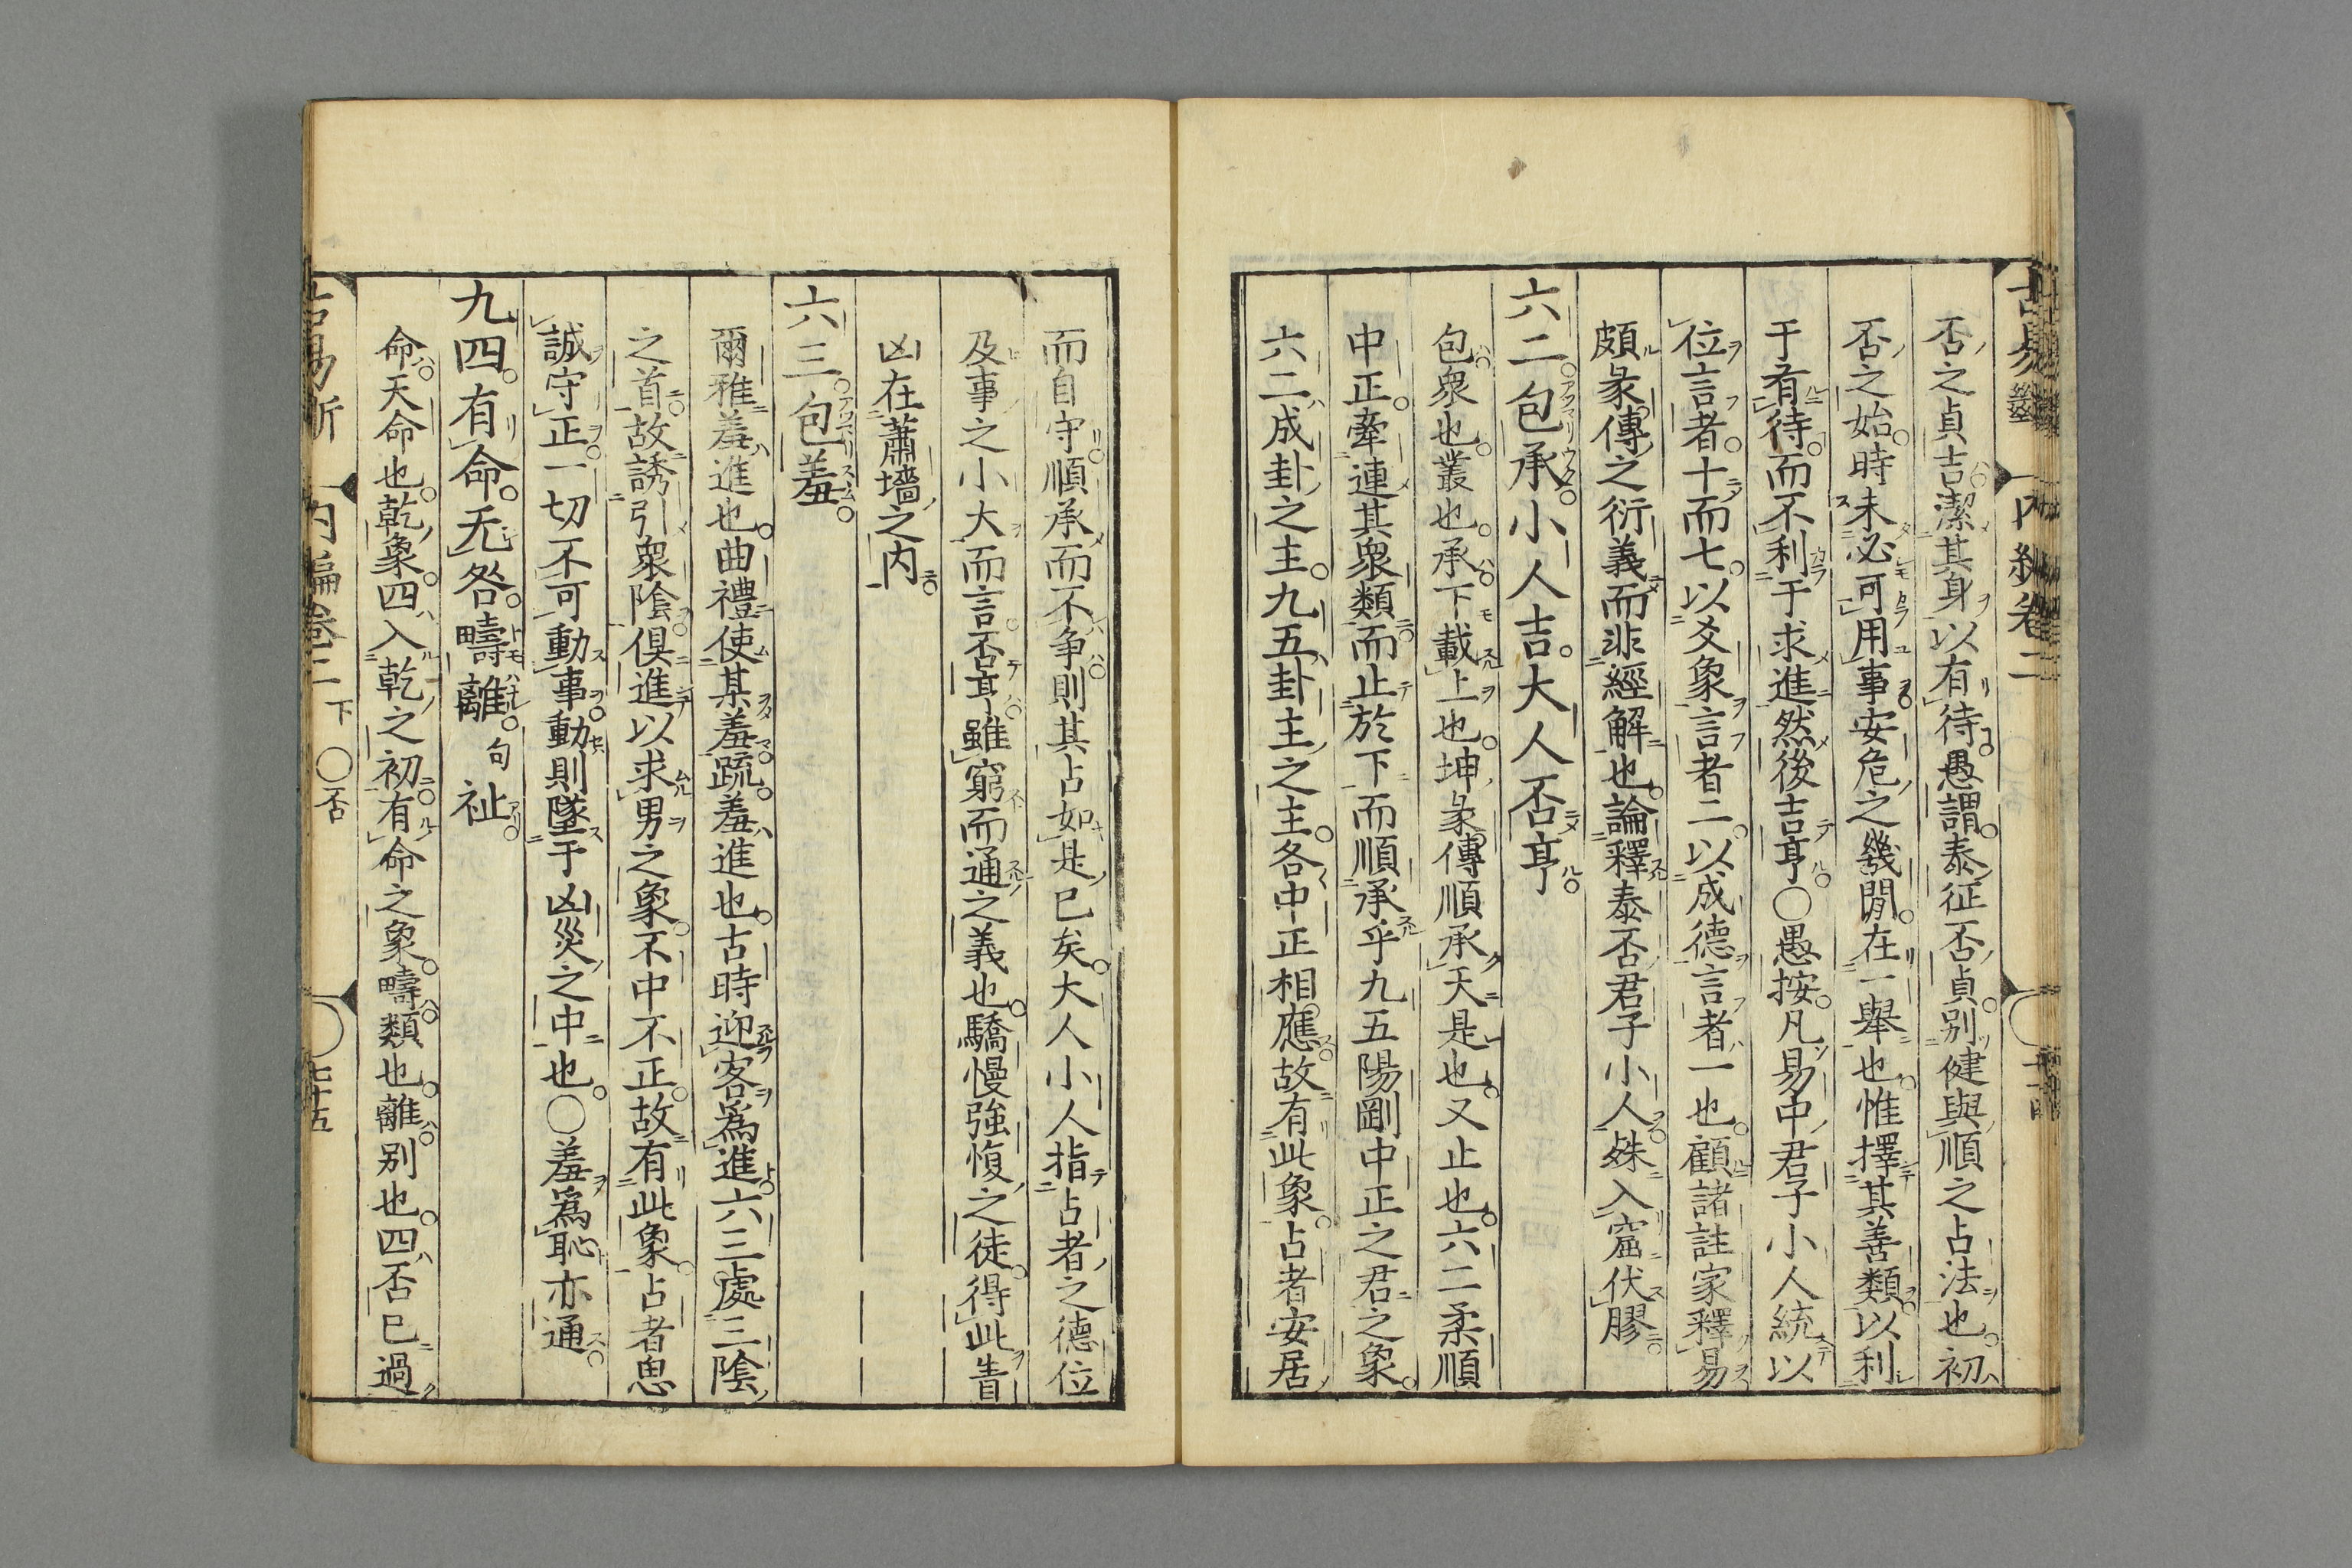 否之貞吉潔其身以有待愚謂泰征否貞別健與順之占法也初
否之始時未必可用事安危之幾閒在一舉也惟擇其善類以利
于肴待而不利于求進然後吉亨○愚按凡易中君子小人統以
位言者十而七以爻象言者二以成德言者一也顧諸註家釋易
頗彖傳之衍義而非經解也論釋泰否君子小人殊入窟伏膠
六二包承小人吉大人否亨
包衆也叢也承下載上也坤彖傳順承天是也又止也六二柔順
中正牽連其衆類而止於下而順承乎九五陽剛中正之君之象
六二成卦之主九五卦主之主各中正相應故有此象占者安居
而自守順承而不争則其占如是已矣大人小人指占者之德位
及事之小大而言否亨雖窮而通之義也驕慢強愎之徒得此眚
凶在蕭墻之内
六三包羞
爾雅羞進也曲禮使某羞疏羞進也古時迎客爲進六三處三陰
之首故誘引衆陰俱進以求男之象不中不正故有此象占者思
誠守正一切不可動事動則墜于凶災之中也○羞爲恥亦通
九四有命无咎疇離句祉
命天命也乾象四入乾之初有命之象疇類也離別也四否已過
古易斷 内編卷二 下 ○否 七十五